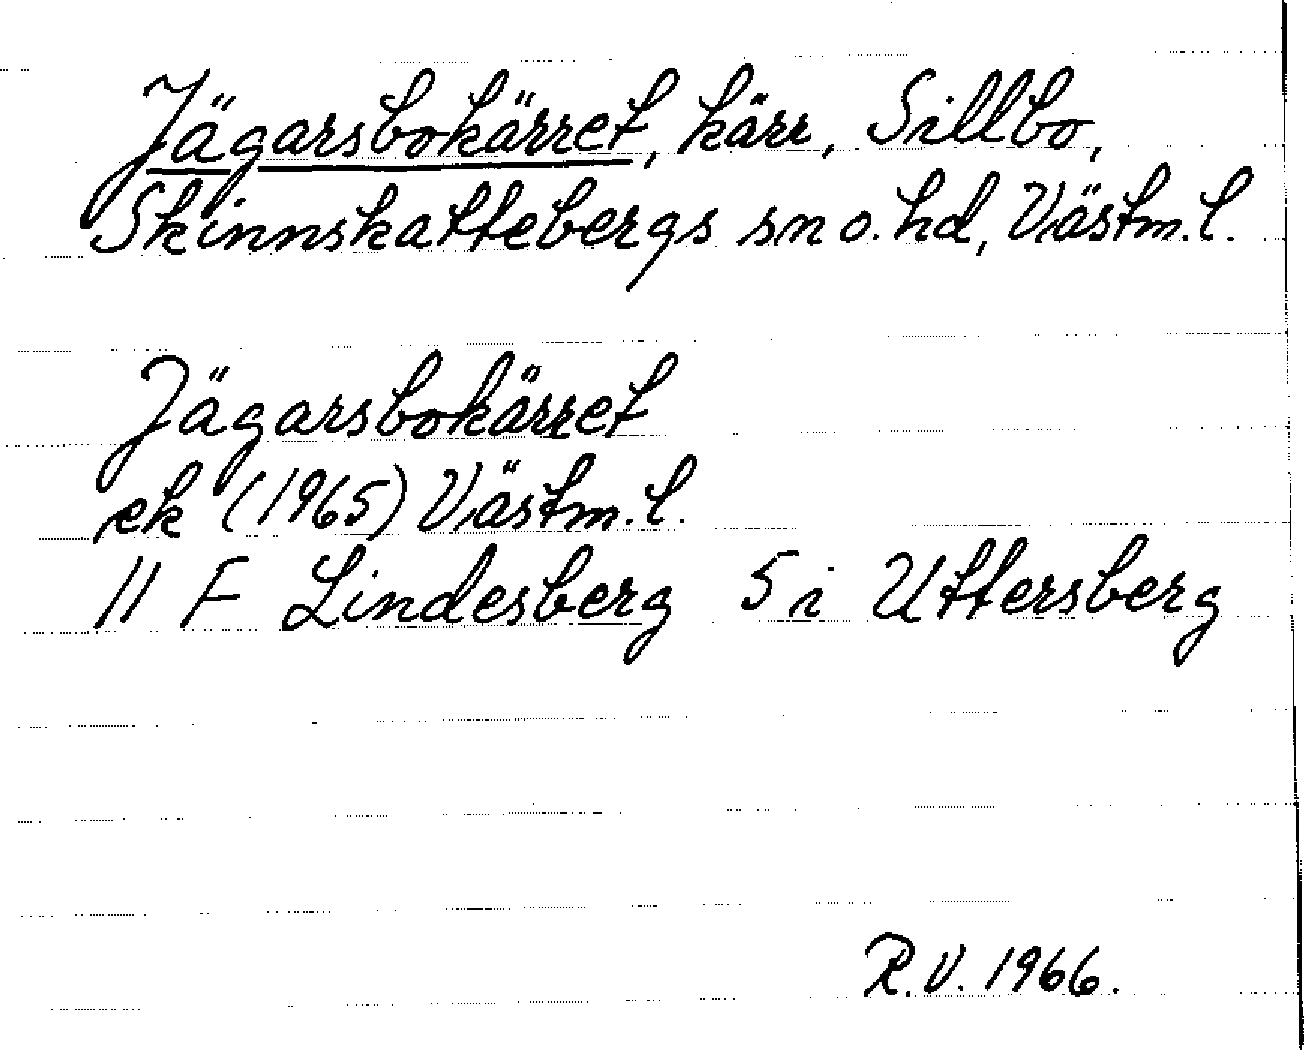 Jägarsbokärret, kärr, Sillbo,
Skinnskattebergs sn o. hd, Västm. l.
Jägarsbokärret
ek (1965) Västm. l.
11 F Lindesberg 5 i Uttersberg
R.V. 1966.